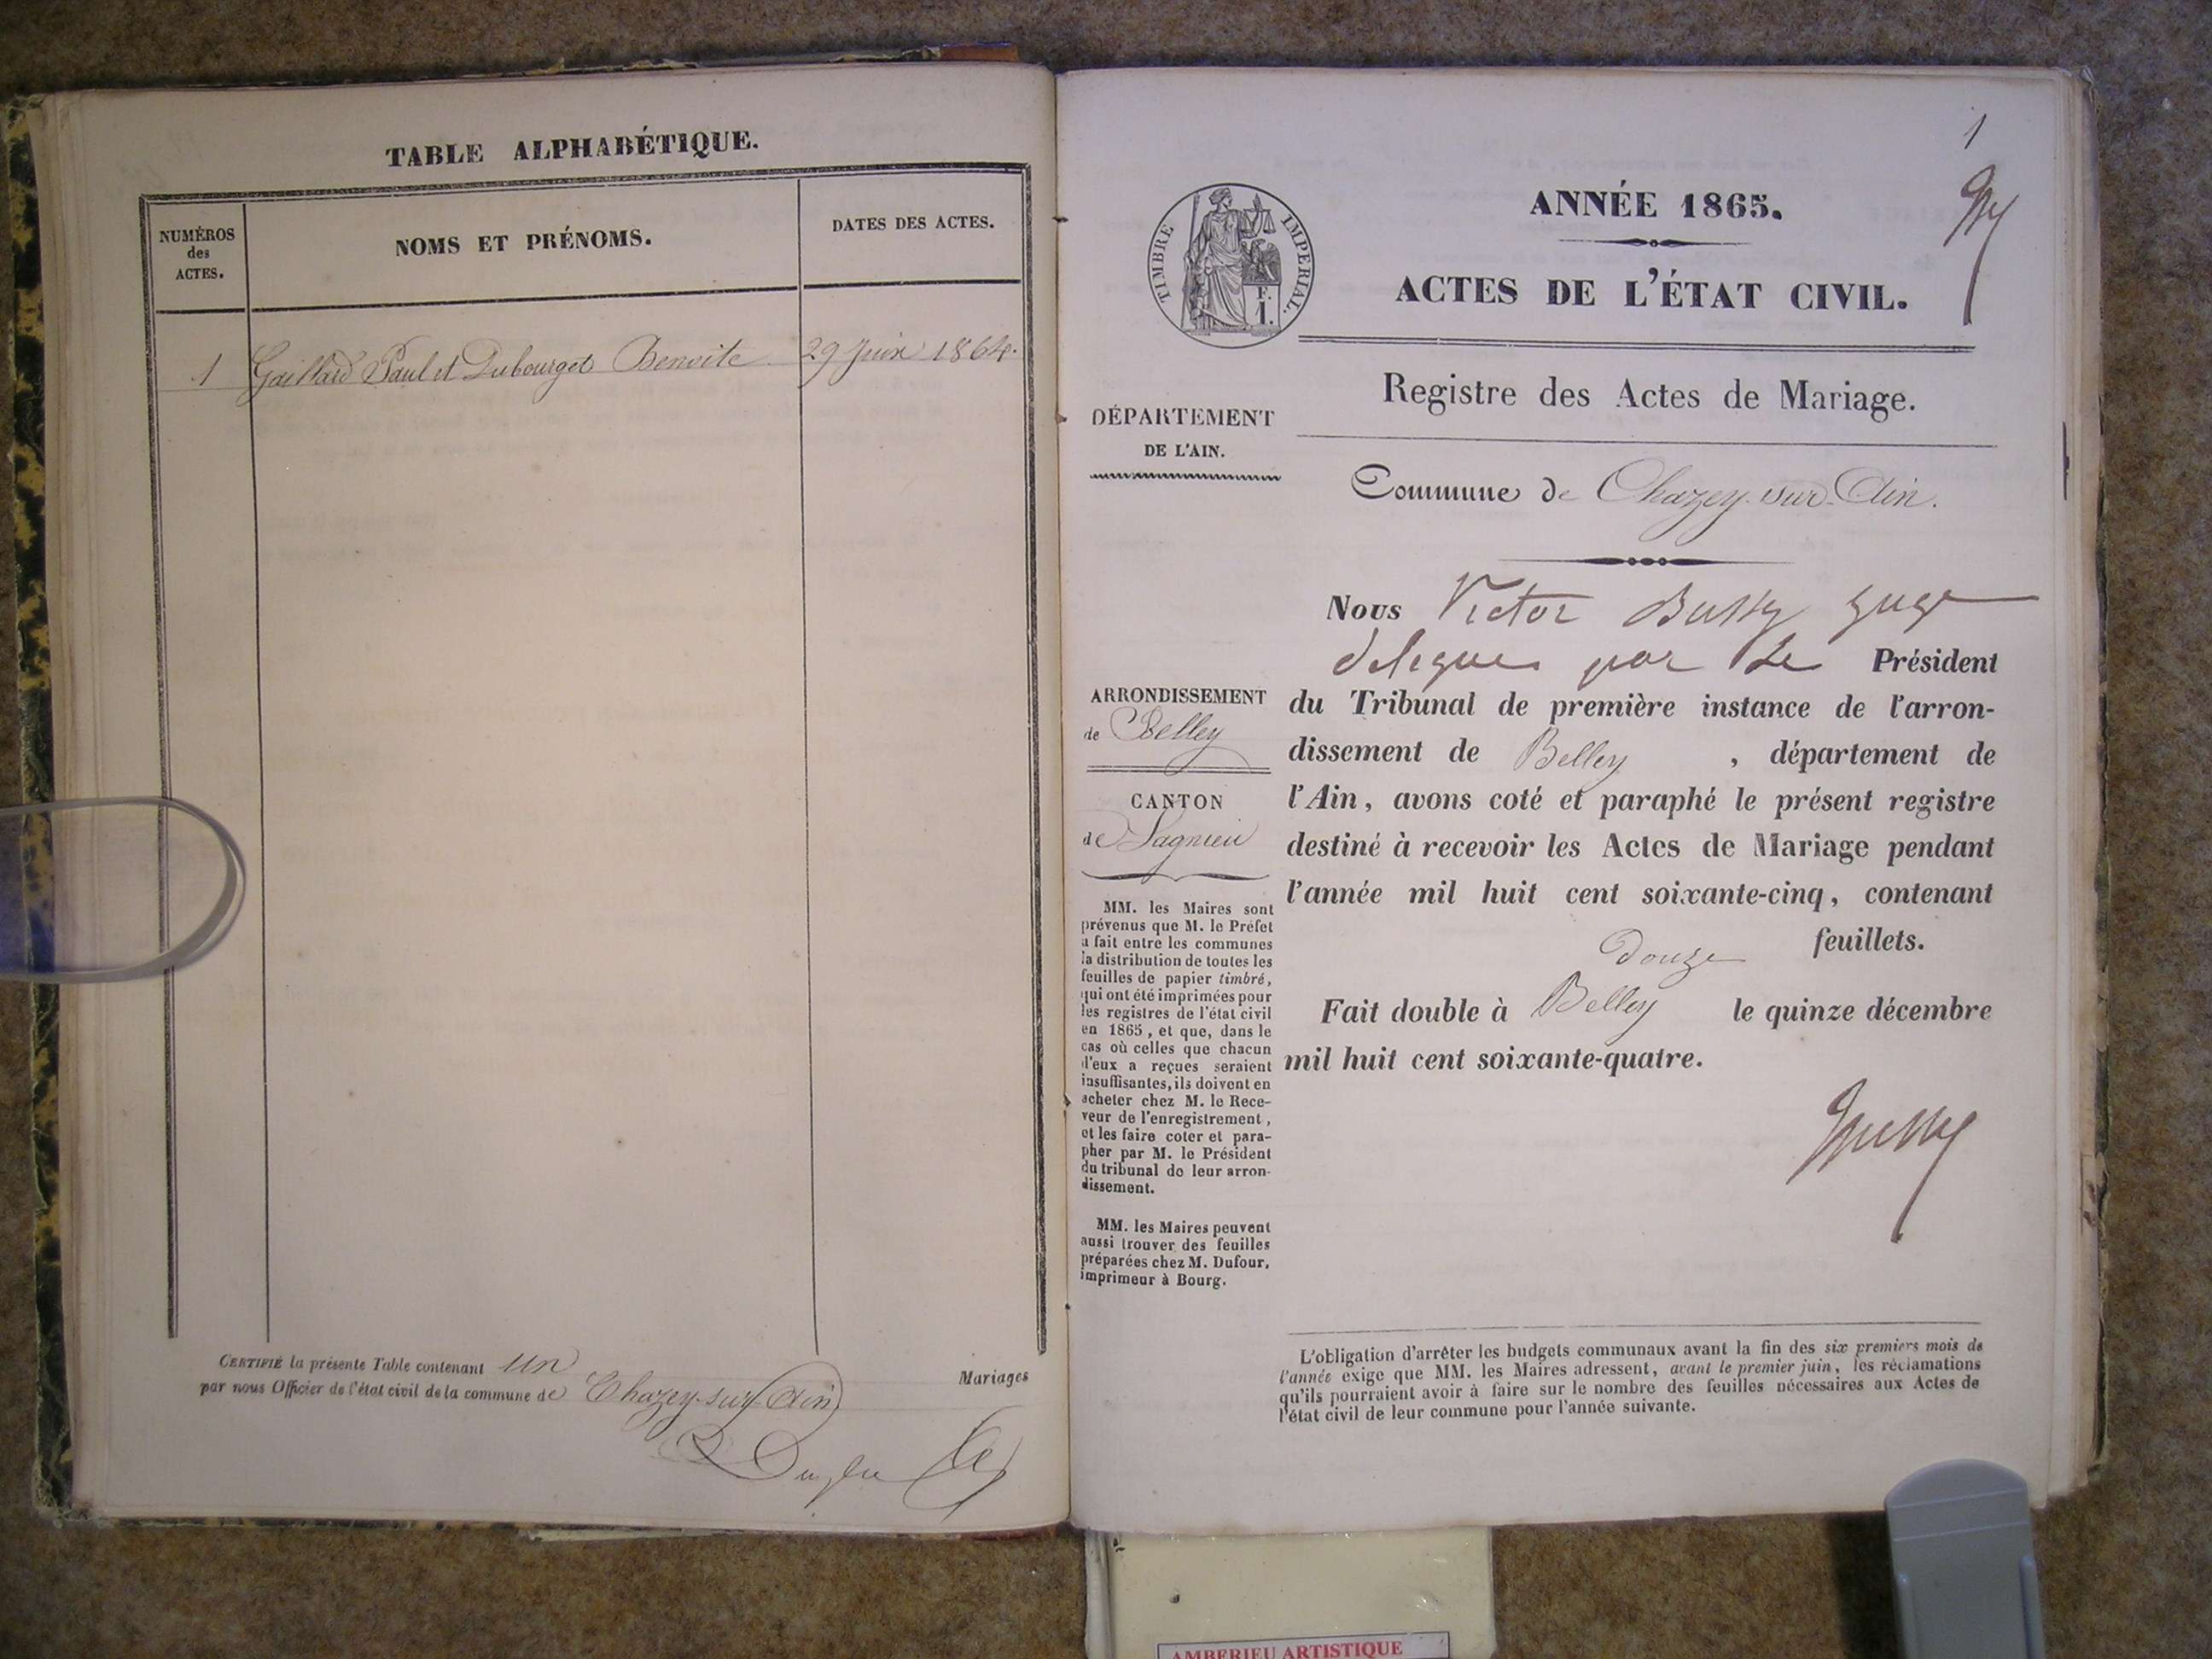 TABLE ALPHABÉTIQUE.
NUMÉROS
des
ACTES.
NOMS ET PRÉNOMS.
DATES DES ACTES.
1 Gaillard Paul et Dubourget Benoite 29 Juin 1864.
CERTIFIÉ la présente Table contenant un Mariages
par nous Officier de l'état civil de la commune de Chazey-sur-Ain
1
ANNÉE 1865.
TIMBRE IMPERIAL.
F.
1.
ACTES DE L'ÉTAT CIVIL.
Registre des Actes de Mariage.
DÉPARTEMENT
DE L'AIN.
Commune de Chazey-sur-Ain.
ARRONDISSEMENT
de Belley
CANTON
de Lagnieu
MM. les Maires sont
prévenus que M. le Préfet
a fait entre les communes
la distribution de toutes les
feuilles de papier timbré,
qui ont été imprimées pour
les registres de l'état civil
en 1865, et que, dans le
cas où celles que chacun
d'eux a reçues seraient
insuffisantes, ils doivent en
acheter chez M. le Rece-
veur de l'enregistrement,
et les faire coter et para-
pher par M. le Président
du tribunal de leur arron-
dissement.
MM. les Maires peuvent
aussi trouver des feuilles
préparées chez M. Dufour,
imprimeur à Bourg.
Nous Victor Bussy Juge
delegué par Le Président
du Tribunal de première instance de l'arron-
dissement de Belley, département de
l'Ain, avons coté et paraphé le présent registre
destiné à recevoir les Actes de Mariage pendant
l'année mil huit cent soixante-cinq, contenant
Douze feuillets.
Fait double à Belley le quinze décembre
mil huit cent soixante-quatre.
Bussy
L'obligation d'arrêter les budgets communaux avant la fin des six premiers mois de
l'année exige que MM. les Maires adressent, avant le premier juin, les réclamations
qu'ils pourraient avoir à faire sur le nombre des feuilles nécessaires aux Actes de
l'état civil de leur commune pour l'année suivante.
AMBERIEU ARTISTIQUE